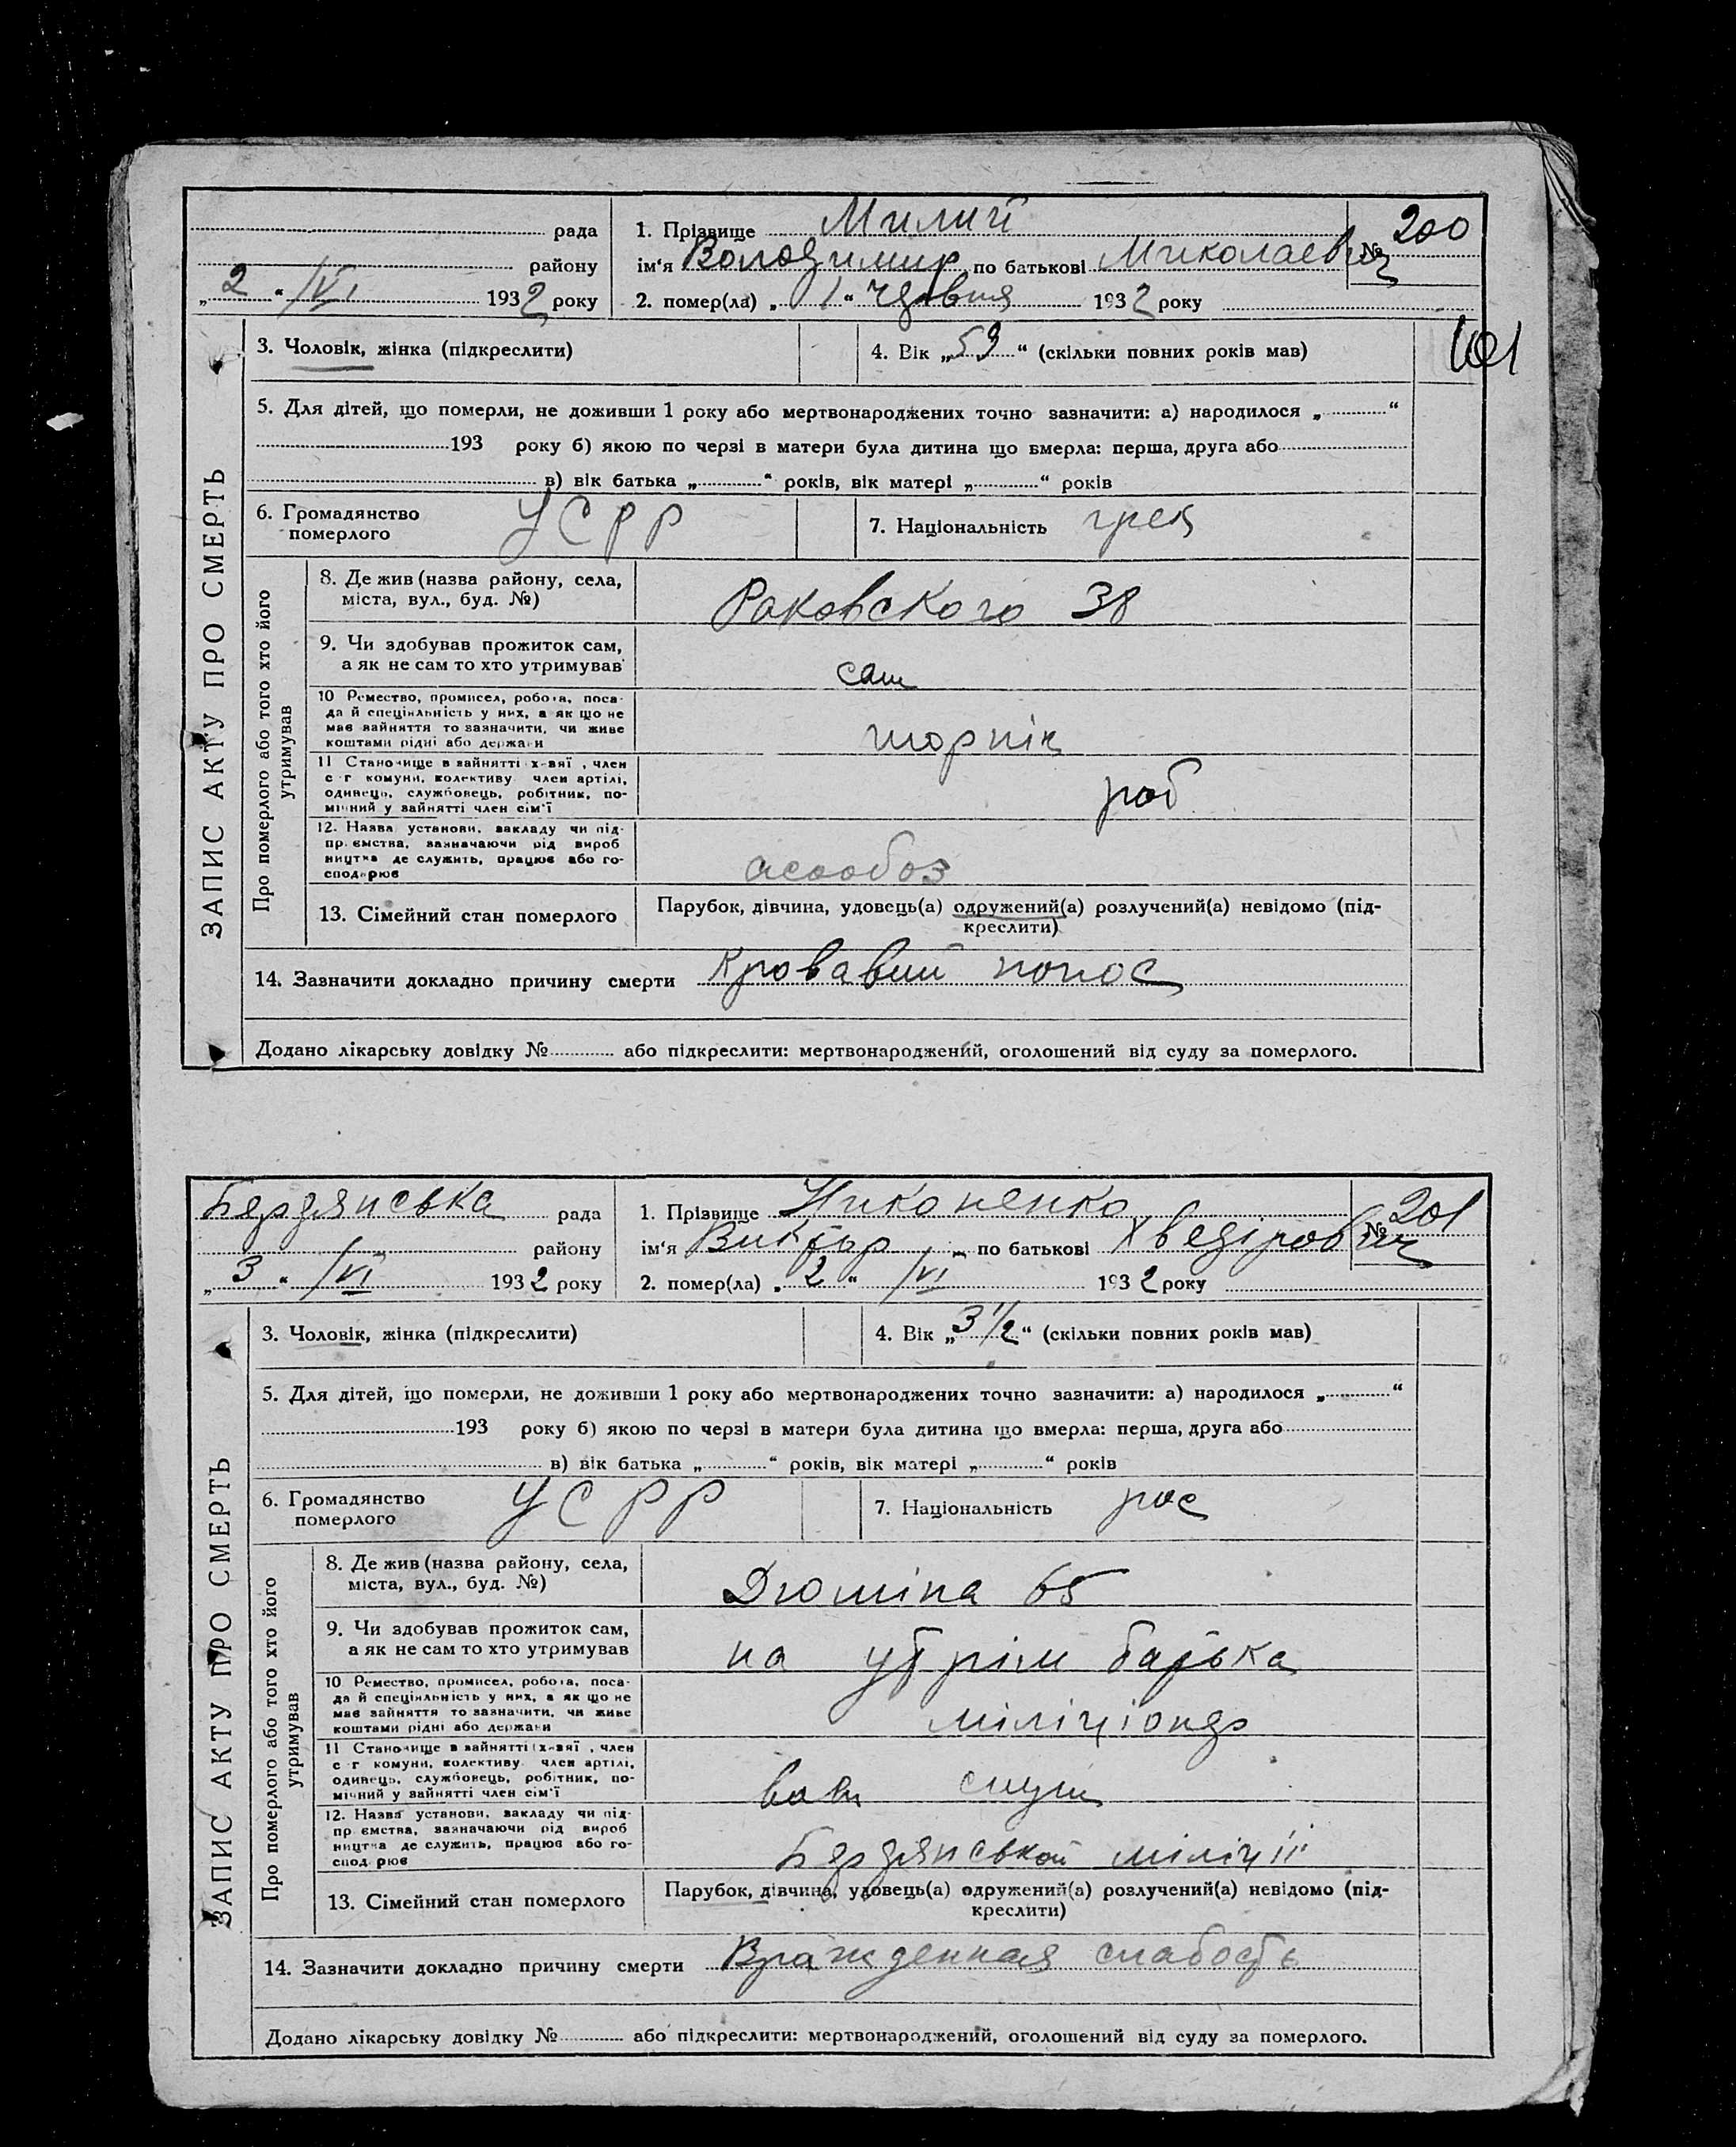 рада 1. Прізвище Милий № 200
району ім‘я Володимир по батькові Миколаевич
„2“ /VI 1932 року 2. помер(ла) „1“ червня 1932 року
101
ЗАПИС АКТУ ПРО СМЕРТЬ
3. Чоловік, жінка (підкреслити) 4. Вік „59“ (скільки повних років мав)
5. Для дітей, що померли, не доживши 1 року або мертвонароджених точно зазначити: а) народилося „ “
193 року б) якою по черзі в матери була дитина що вмерла: перша, друга або
в) вік батька „ “ років, вік матері „ “ років
6. Громадянство померлого УСРР 7. Національність грек
Про померлого або того хто його утримував
8. Де жив (назва району, села,
міста, вул., буд. №) Раковского 38
9. Чи здобував прожиток сам,
а як не сам то хто утримував сам
10 Ремество, промисел, робота, поса-
да й спеціяльність у них, а як що не
має зайняття то зазначити, чи живе
коштами рідні або держави шорнік
11 Становище в зайнятті х-вяї, член
с-г комуни, колективу член артілі,
одинець, службовець, робітник, по-
мічний у зайнятті член сім‘ї роб
12. Назва установи, закладу чи під-
пр ємства, зазначаючи рід вироб
ництва де служить, працює або го-
сподарює асообоз
13. Сімейний стан померлого Парубок, дівчина, удовець(а) одружений(а) розлучений(а) невідомо (під-
креслити)
14. Зазначити докладно причину смерти Кровавий понос
Додано лікарську довідку № або підкреслити: мертвонароджений, оголошений від суду за померлого.
Бердянська рада 1. Прізвище Никоненко № 201
району ім‘я Виктор по батькові Хведірович
„3“ /VI 1932 року 2. помер(ла) „2“ /VI 1932 року
ЗАПИС АКТУ ПРО СМЕРТЬ
3. Чоловік, жінка (підкреслити) 4. Вік „3 1/2“ (скільки повних років мав)
5. Для дітей, що померли, не доживши 1 року або мертвонароджених точно зазначити: а) народилося „ “
193 року б) якою по черзі в матери була дитина що вмерла: перша, друга або
в) вік батька „ “ років, вік матері „ “ років
6. Громадянство померлого УСРР 7. Національність рос
Про померлого або того хто його утримував
8. Де жив (назва району, села,
міста, вул., буд. №) Дюміна 65
9. Чи здобував прожиток сам,
а як не сам то хто утримував на утрім батька
10 Ремество, промисел, робота, поса-
да й спеціяльність у них, а як що не
має зайняття то зазначити, чи живе
коштами рідні або держави міліціонер
11 Становище в зайнятті х-вяї, член
с-г комуни, колективу член артілі,
одинець, службовець, робітник, по-
мічний у зайнятті член сім‘ї служ
12. Назва установи, закладу чи під-
пр ємства, зазначаючи рід вироб
ництва де служить, працює або го-
сподарює Бердянськой міліціі
13. Сімейний стан померлого Парубок, дівчина, удовець(а) одружений(а) розлучений(а) невідомо (під-
креслити)
14. Зазначити докладно причину смерти Вражденная слабость
Додано лікарську довідку № або підкреслити: мертвонароджений, оголошений від суду за померлого.